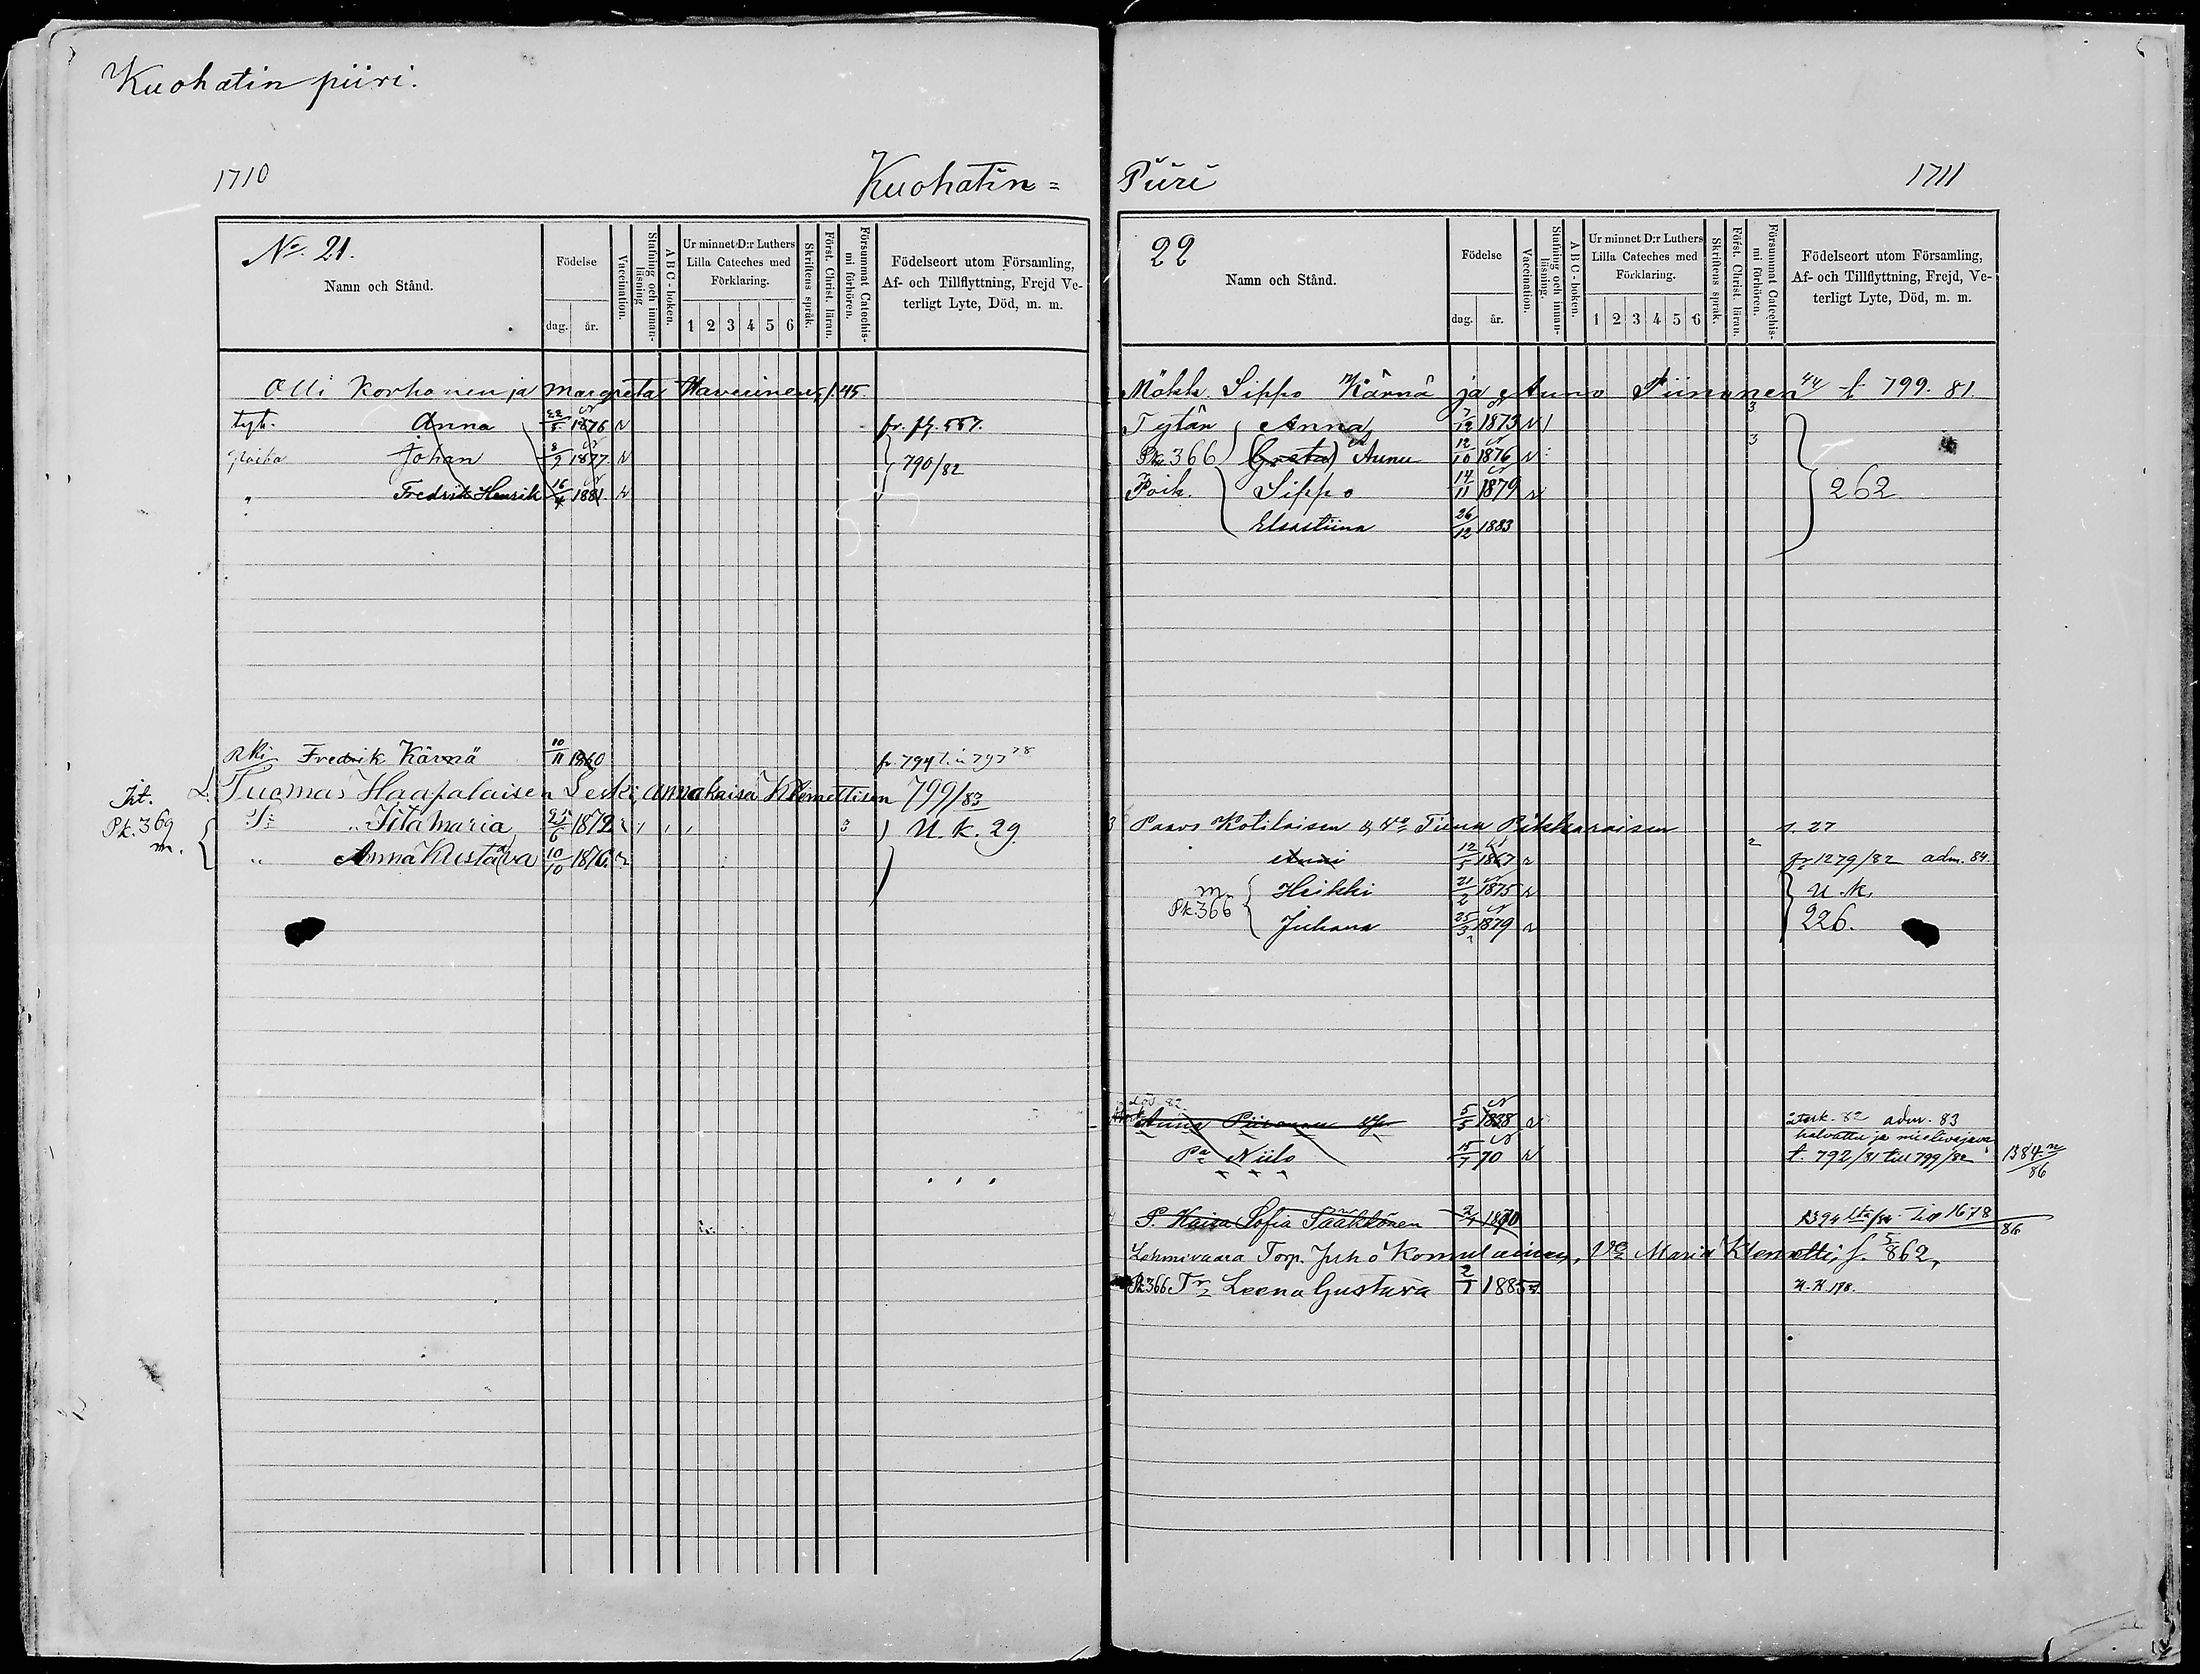 Kuohatin piiri.
1710 Kuohatin=
No. 21.
Namn och Stånd.
Födelse
dag. år.
Vaccination.
Stafning och innan-läsning
ABC-boken.
Ur minnet D:r Luthers Lilla Cateches med Förklaring.
1 2 3 4 5 6
Skriftens språk.
Först. Christ. läran.
Försummat Catechis-mi förhören.
Födelseort utom Församling, Af- och Tillflyttning, Frejd Ve-terligt Lyte, Död, m. m.
Olli Korhonen ja Margreta s. 45.
tyt. Anna 1876 fr. 557.
poika Johan 8/9 1877 790/82
" Fredrik Henrik 16/4 1881
Rki Fredrik Kärnä 10/11 1860 fr. 794
L. Tuomas Haapalaisen Leski Annakaisa Klemettisen 799/83
Pk. 369 m.
" Iita Maria 25/6 1872 3 U. K. 29.
" Anna Kustava 10/10 1876
Piiri 1711
22
Namn och Stånd.
Födelse
dag. år.
Vaccination.
Stafning och innan-läsning.
ABC-boken.
Ur minnet D:r Luthers Lilla Cateches med Förklaring.
1 2 3 4 5 6
Skriftens språk.
Först. Christ. läran.
Försummat Catechis-mi förhören.
Födelseort utom Församling, Af- och Tillflyttning, Frejd, Ve-terligt Lyte, Död, m. m.
Mökk. Sippo Kärnä ja Anna Piironen 44 f. 799. 81.
Tytär Anna 7/12 1873 3
Pk. 366 (Greta) Aunu 12/10 1876 3
Poik. Sippo 14/11 1879 262
Elsastiina 26/12 1883
Paavo Kotilaisen Tiina Pikkaraisen s. 27
Anni 12/5 1867 2 fr 1279/82 adm. 84.
m. Heikki 21/2 1875 U. K.
Pk. 366 Juhana 25/3 1879 226.
död 82.
Anna Piironen 5/5 1838 adm. 83
halvattu ja mielivajava
Niilo 70 f. 792/81 till 799/82 1384/86
P. Kaisa Sofia Pääkkönen 2/7 1870 1678/86
Lehmivaara Torp. Juho Komulainen, Maria Klemetti, f. 862,
Pk 366 Tr Leena Gustava 2/1 1885 198.